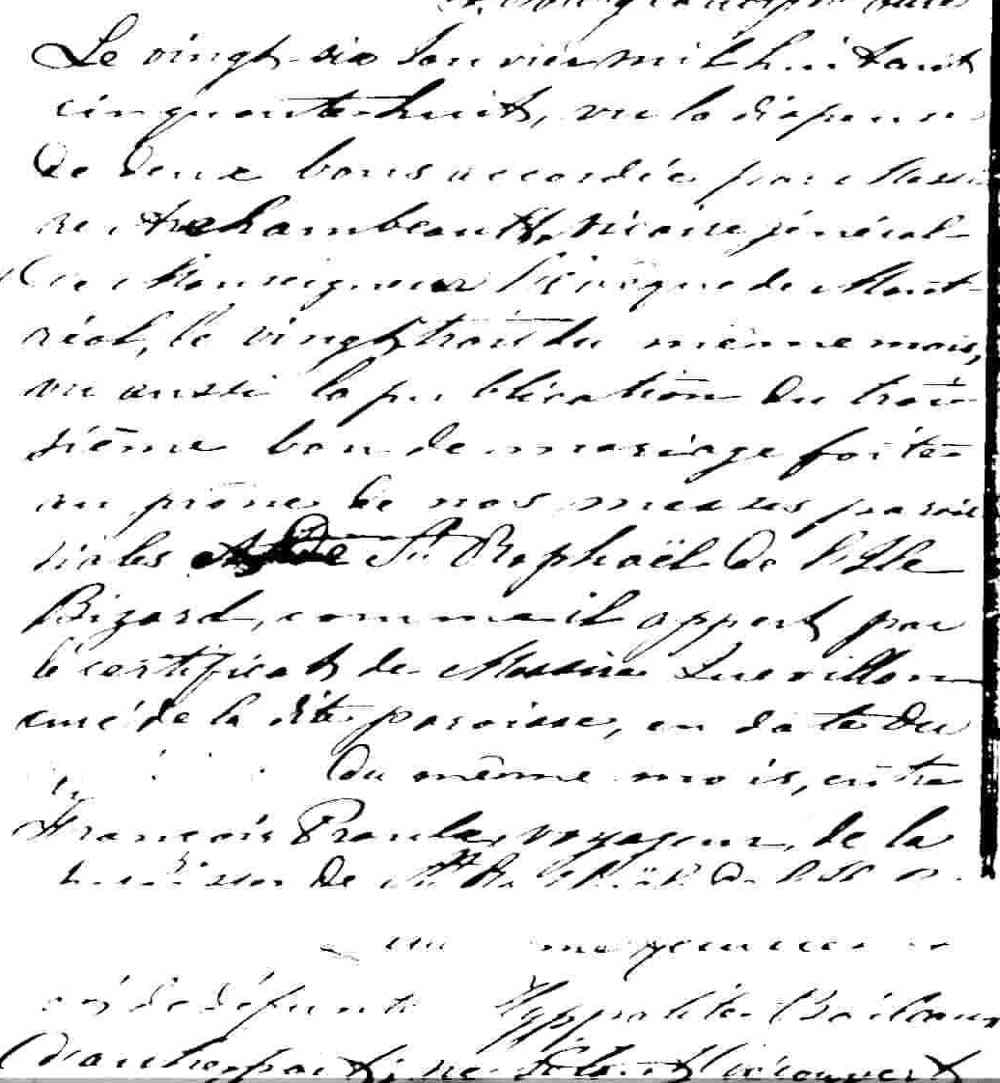 Le vingt-six Janvier mil huit cent
cinquante-huit, vu la dispense
de deux bans accordée par Messi
re Archambeault, vicaire général
de Monseigneur l'évêque de Mont-
réal, le vingt trois du même mois,
vu aussi la publication du troi-
sième ban de mariage faite
au prône de nos messes parois
siales et de St Raphaël de l'Isle
Bizard, comme il appert par
le certificat de Messire Quevillon
curé de la dite paroisse, en date du
du même mois, entre
François Proulx voyageur, de la
paroisse de St Raphaël de l'Isle
mageur
de défunt Hyppolite
d'autre part; ne s'étant découvert